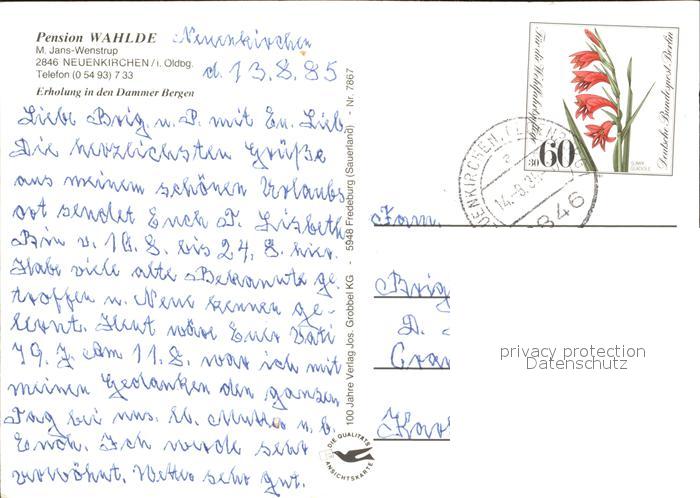 Pension WAHLDE
M. Jans-Wenstrup
2846 NEUENKIRCHEN/i. Oldbg.
Telefon (0 54 93) 7 33
Erholung in den Dammer Bergen
Neuenkirchen
d. 13.8.85
Liebe Brig. u. P. mit Eu. Lieb
Die herzlichsten Grüße
aus meinem schönen Urlaubs
ort sendet Euch T. Lisbeth
Bin v. 10. 8. bis 24. 8. hier.
Habe viele alte Bekannte ge
troffen u. Neue kennen ge-
lernt. Heut wäre Euer Vati
79 J. Am 11.8. war ich mit
meinen Gedanken den ganzen
Tag bei uns. lb. Mutter u. b.
Euch. Ich werde sehr
verwöhnt. Wetter sehr gut.
100 Jahre Verlag Jos. Grobbel KG - 5948 Fredeburg (Sauerland) - Nr. 7867
DIE QUALITÄTS
ANSICHTSKARTE
Für die Wohlfahrtspflege
Deutsche Bundespost Berlin
60
30
14.-8.85
Fam.
Brig
D.
Karl
privacy protection
Datenschutz